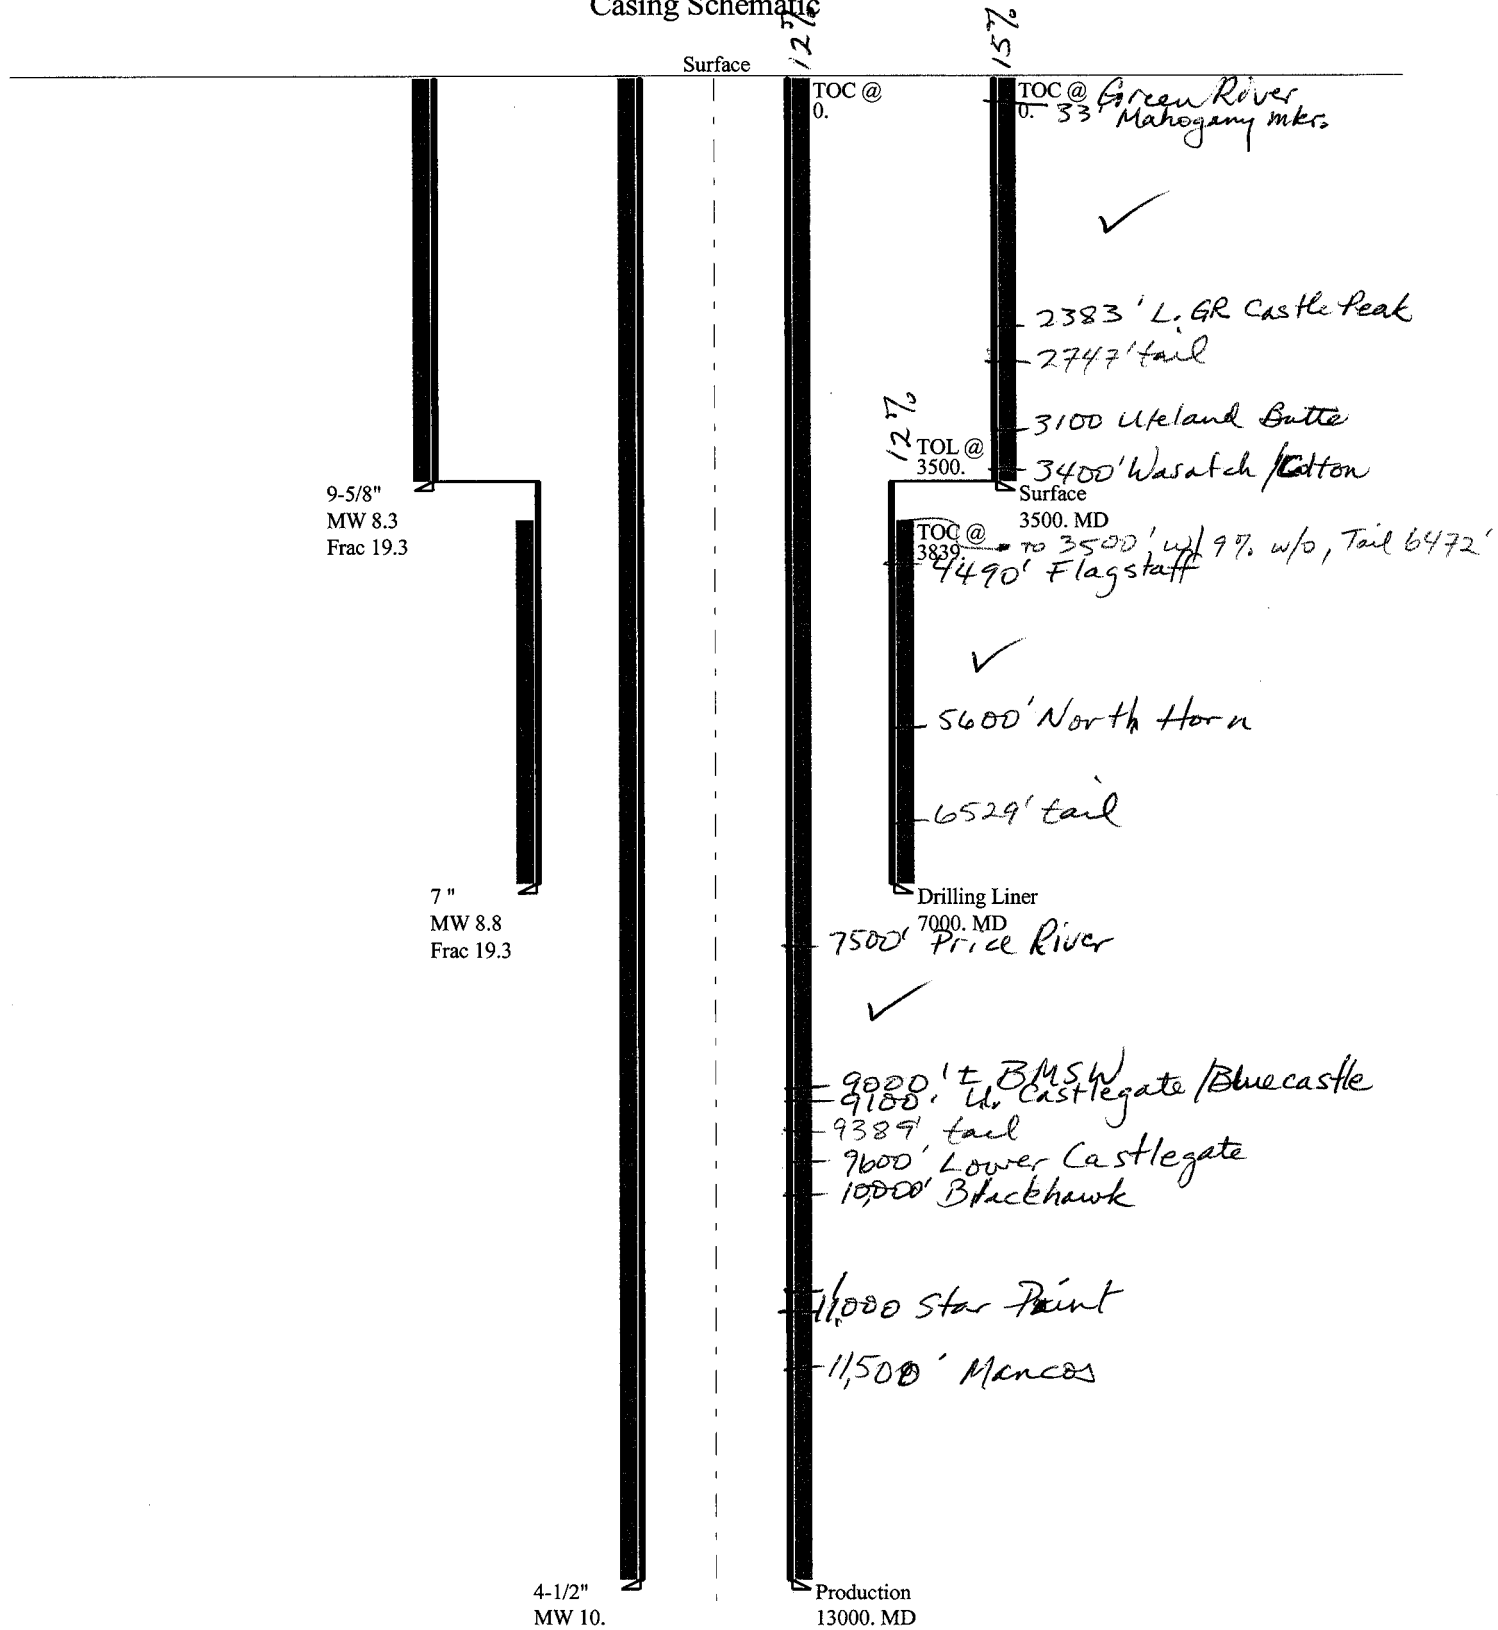 Casing Schematic
12%
15%
Surface
TOC @
0.
TOC @
0.
Green River
33' Mahogany mkr.
2383' L. GR Castle Peak
2747' tail
3100 Uteland Butte
12%
TOL @
3500.
3400' Wasatch/Colton
9-5/8"
MW 8.3
Frac 19.3
Surface
3500. MD
TOC @
3839.
to 3500' w/ 9% w/o, Tail 6472'
4490' Flagstaff
5600' North Horn
6529' tail
7 "
MW 8.8
Frac 19.3
Drilling Liner
7000. MD
7500' Price River
9000'± BMSW
9100' U. Castlegate/Bluecastle
9389' tail
9600' Lower Castlegate
10,000' Blackhawk
11,000 Star Point
11,500' Mancos
4-1/2"
MW 10.
Production
13000. MD